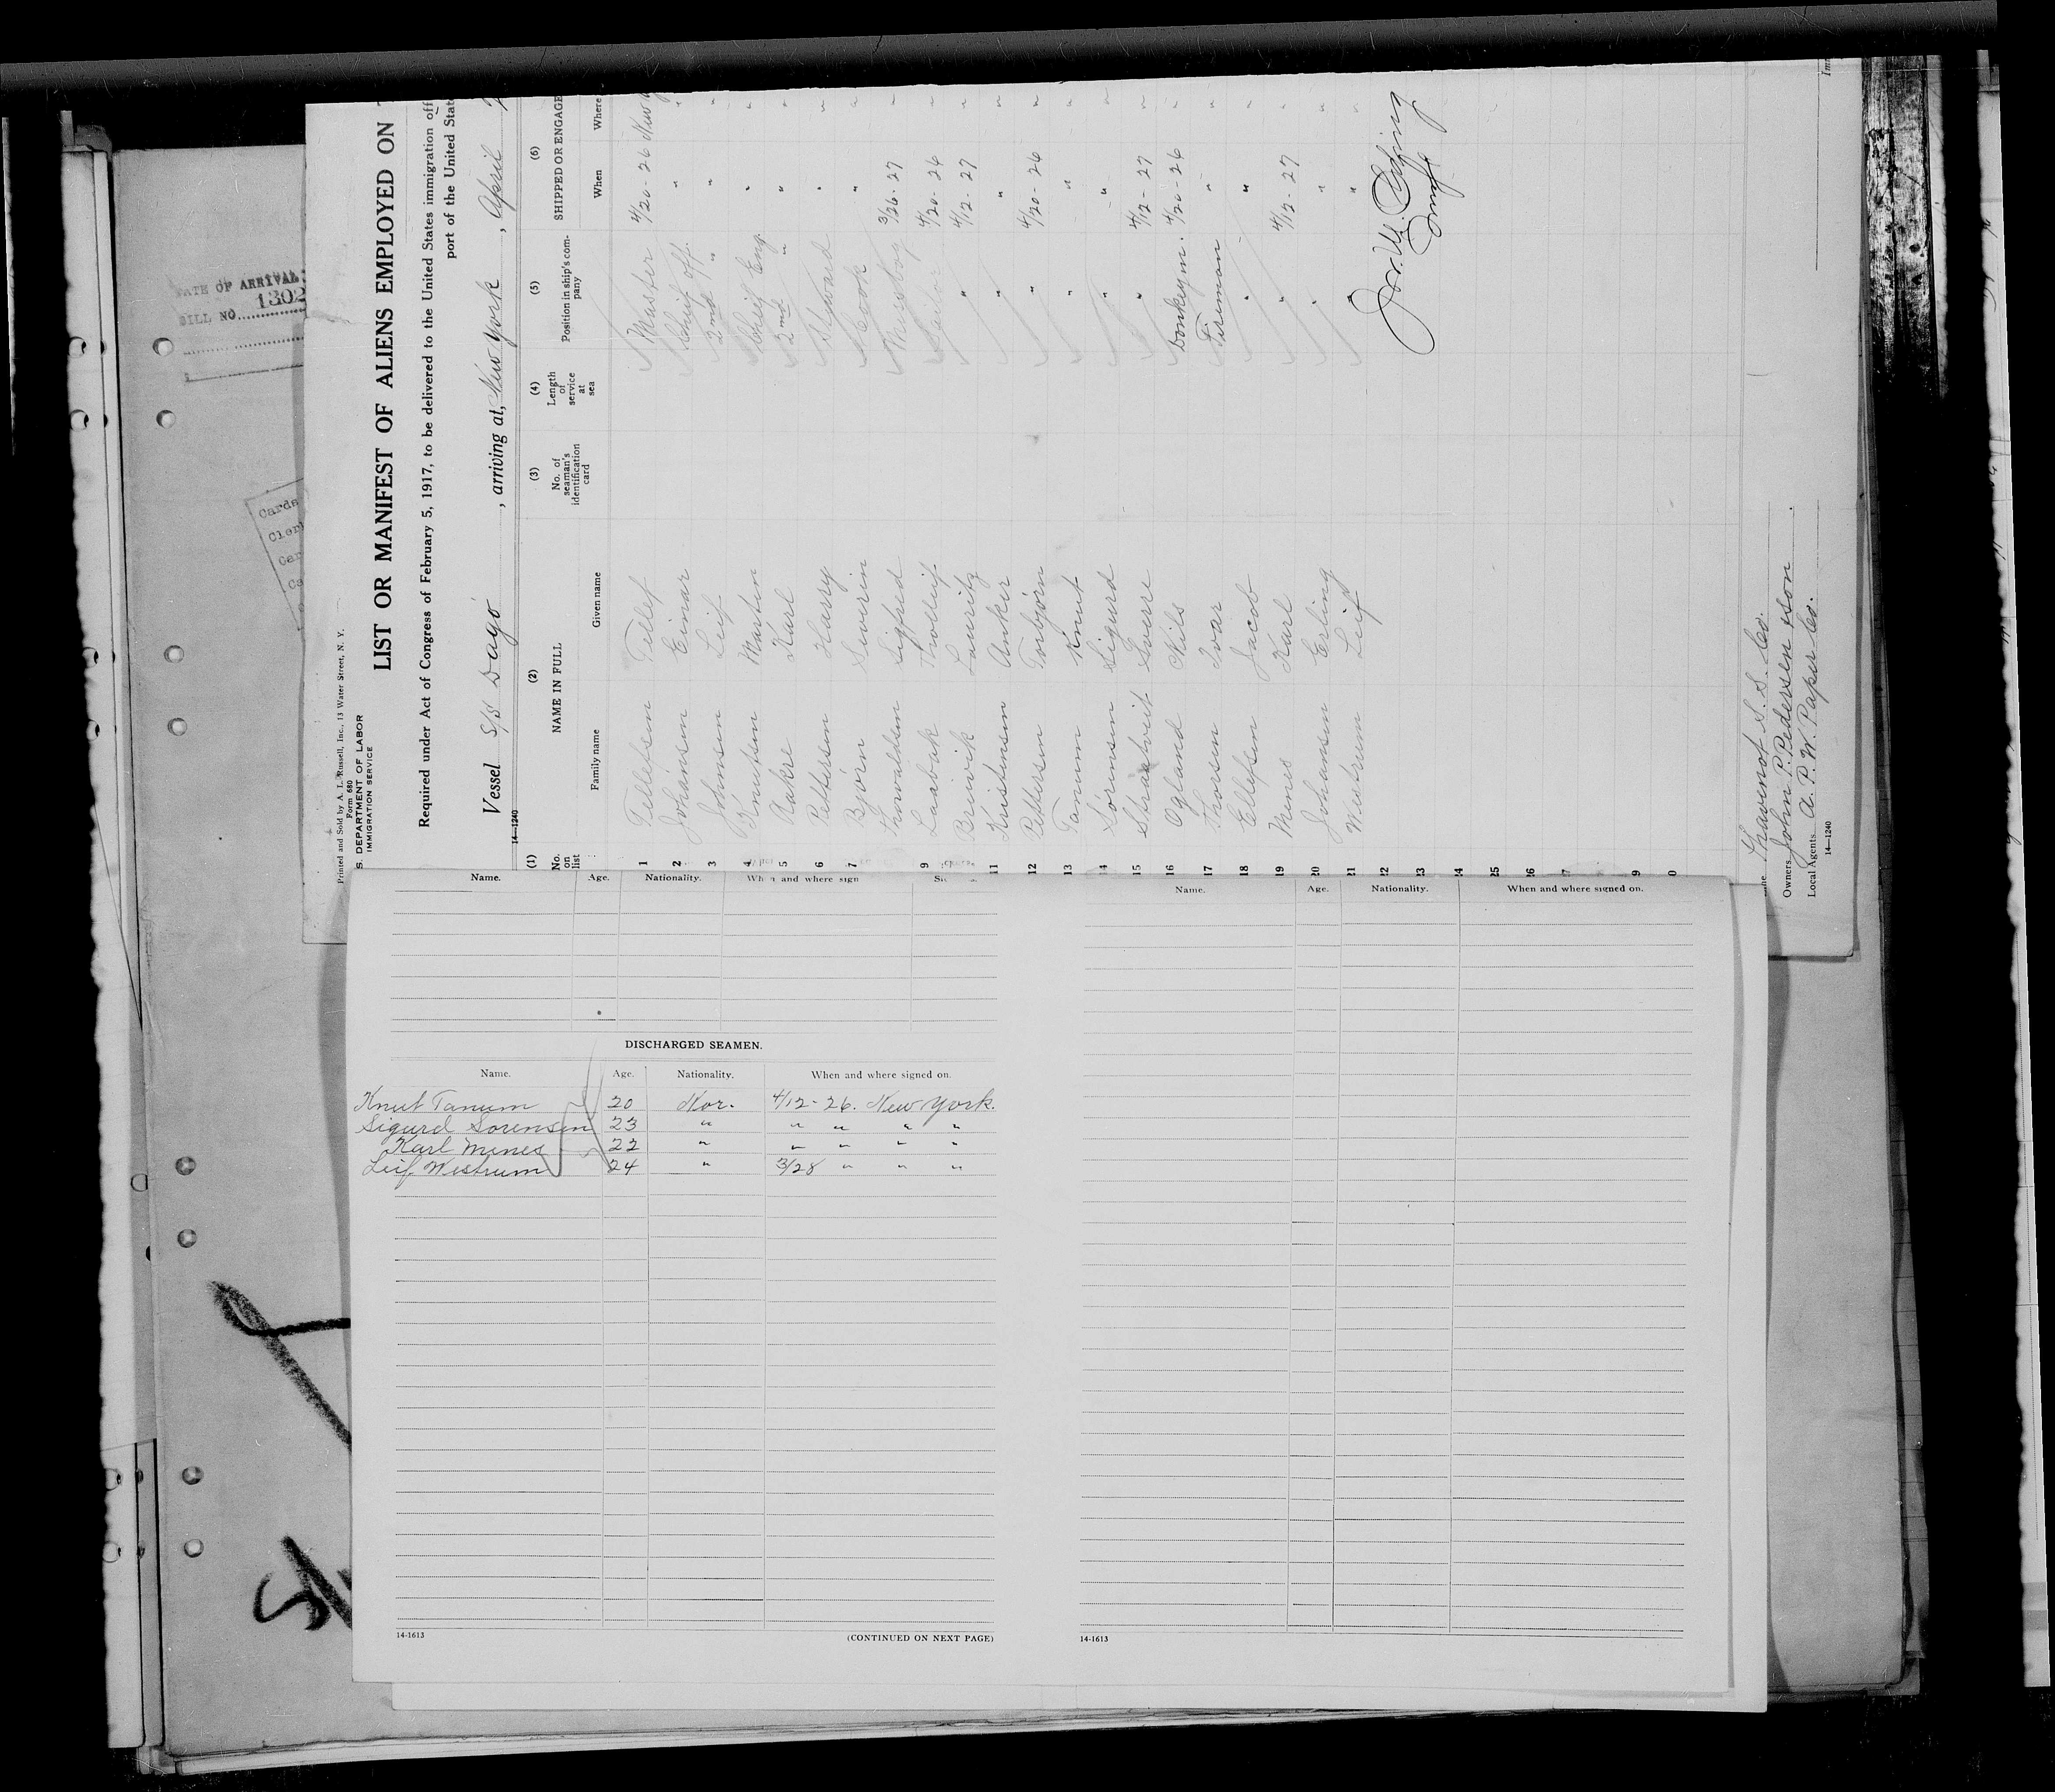 DATE OF ARRIVAL
1302
BILL NO.
Cards
Printed and Sold by A. L. Russell, Inc., 13 Water Street, N. Y.
Form 680
S. DEPARTMENT OF LABOR
IMMIGRATION SERVICE
LIST OR MANIFEST OF ALIENS EMPLOYED ON
Required under Act of Congress of February 5, 1917, to be delivered to the United States immigration off
port of the United Stat
Vessel S/S Dagó, arriving at, New York, April
14—1240
(1) (2) (3) (4) (5) (6)
No. on list NAME IN FULL No. of seaman's identification card Length of service at sea Position in ship's company SHIPPED OR ENGAGE
Family name Given name When Where
1 Tellefsen Tellef Master 4/20-26 New
2 Johansen Einar Chief off. " "
3 Johnsen Leif 2nd " " "
4 Knutsen Martin Chief Eng. " "
5 Vakre Karl 2nd " " "
6 Pettersen Harry Steward " "
7 Bjørn Severin Cook " "
Thorvaldsen Sigfred Messboy 3/26-27 "
9 Laabak Thorleif 4/20-26 "
Breivik Lauritz " 4/12-27 "
11 Kristensen Anker " " "
12 Pettersen Torbjørn " 4/20-26 "
13 Tanum Knut " " "
14 Sorensen Sigurd " " "
15 Straatveit Sverre " 4/12-27 "
16 Ogland Nils Donkeym. 4/20-26 "
17 Thorsen Ivar Fireman " "
18 Ellefsen Jacob " " "
19 Menes Karl " 4/12-27 "
20 Johansen Erling " " "
21 Westrum Leif " " "
22
23
24
25
26
7
9
0
Thavenot S. S. Co.
Owners John P. Pedersen & Son
Local Agents A. P. W. Paper Co.
14—1240
Name. Age. Nationality. When and where sign
DISCHARGED SEAMEN.
Name. Age. Nationality. When and where signed on.
Knut Tanum 20 Nor. 4/12-26. New York.
Sigurd Sorensen 23 " " " " "
Karl Menes 22 " " " " "
Leif Westrum 24 " 3/28 " " "
14-1613 (CONTINUED ON NEXT PAGE)
Name. Age. Nationality. When and where signed on.
14-1613